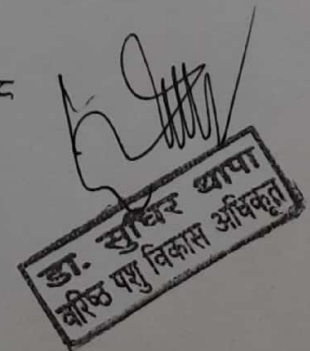 डा. सुधिर थापा
वरिष्ठ पशु विकास अधिकृत